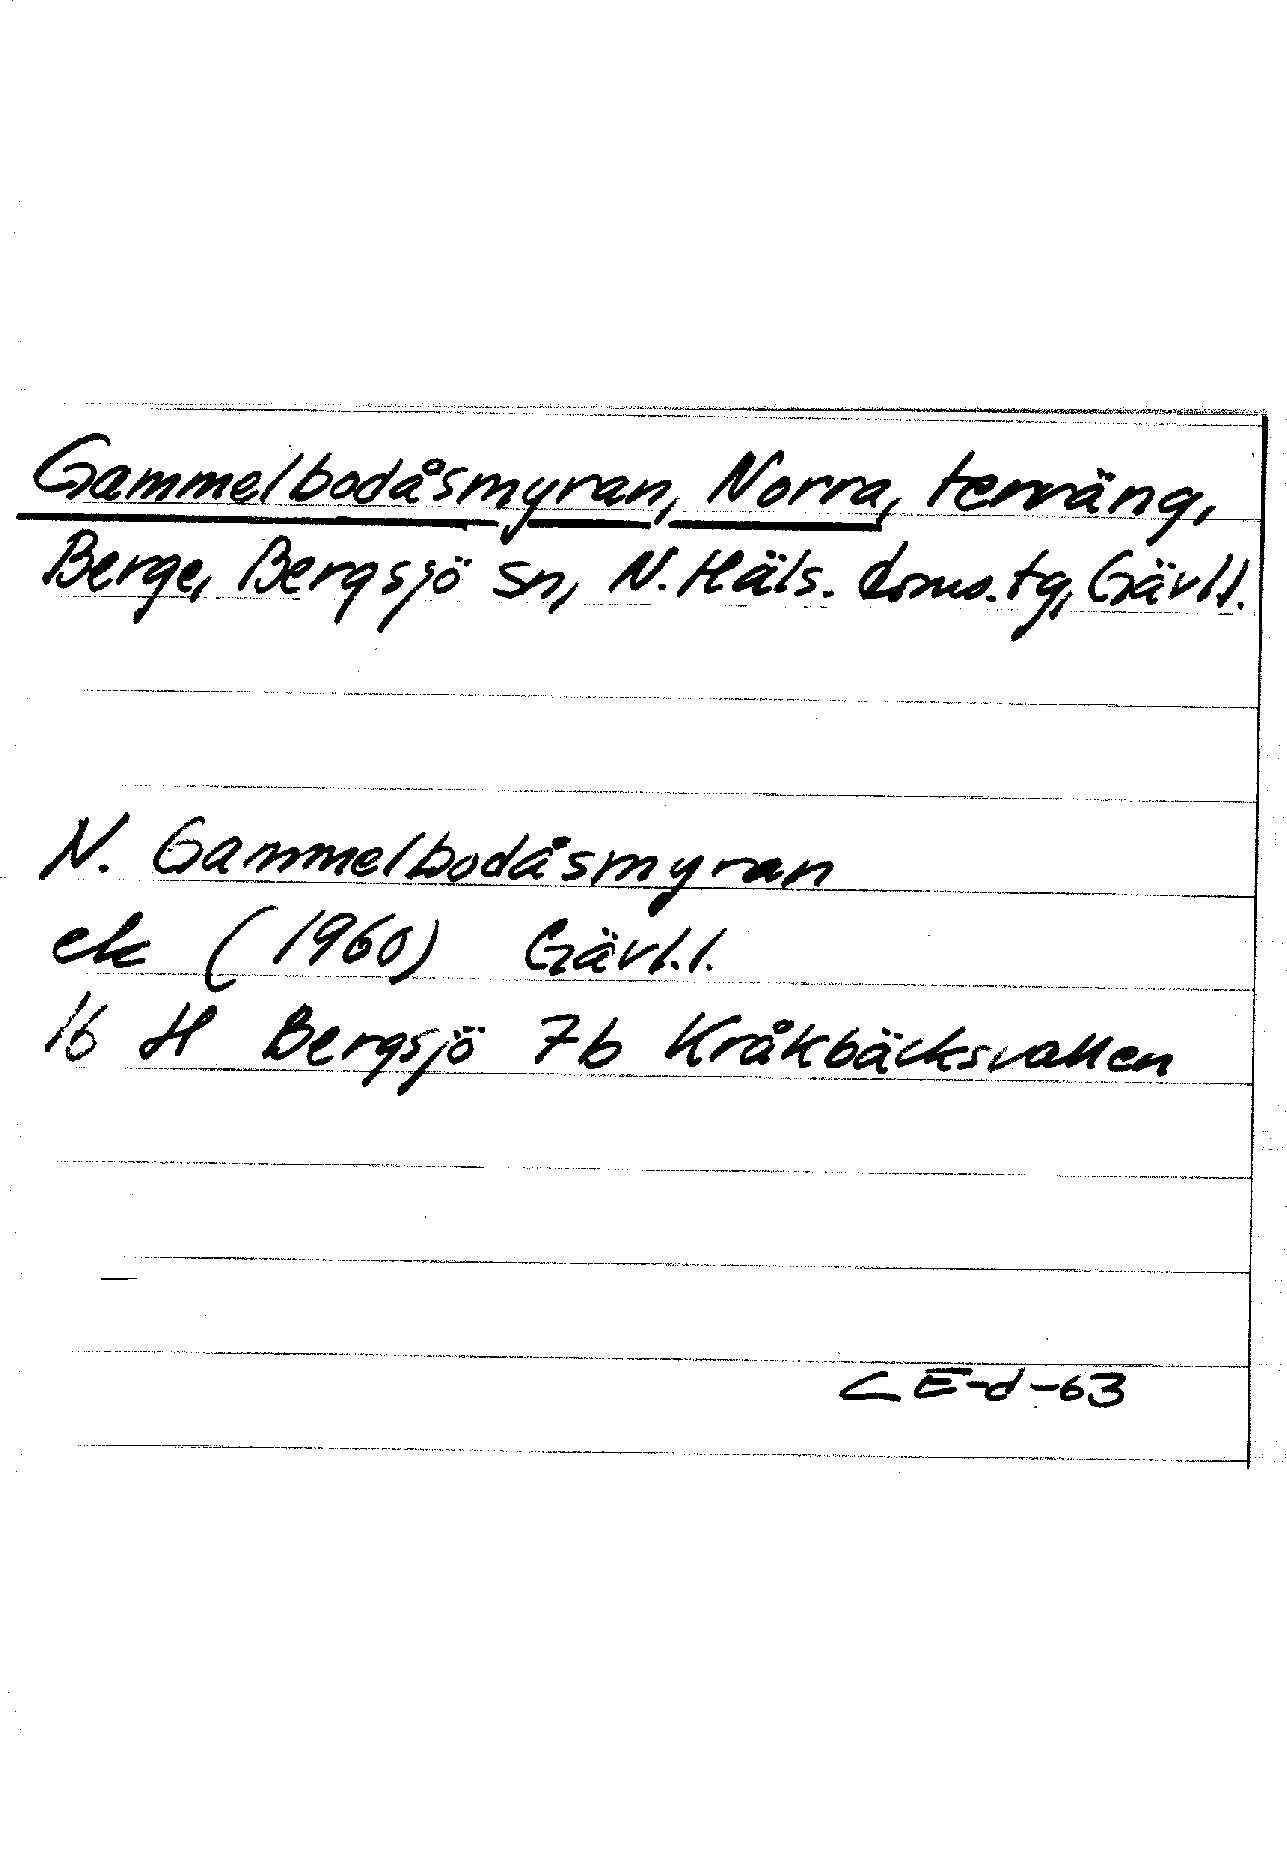 Gammelbodåsmyran, Norra, terräng,
Berge, Bergsjö sn, N. Häls. dms. tg, Gävl.l.
N. Gammelbodåsmyran
ek (1960) Gävl.l.
16 H Bergsjö 7b Kråkbäcksvallen
CE-d-63